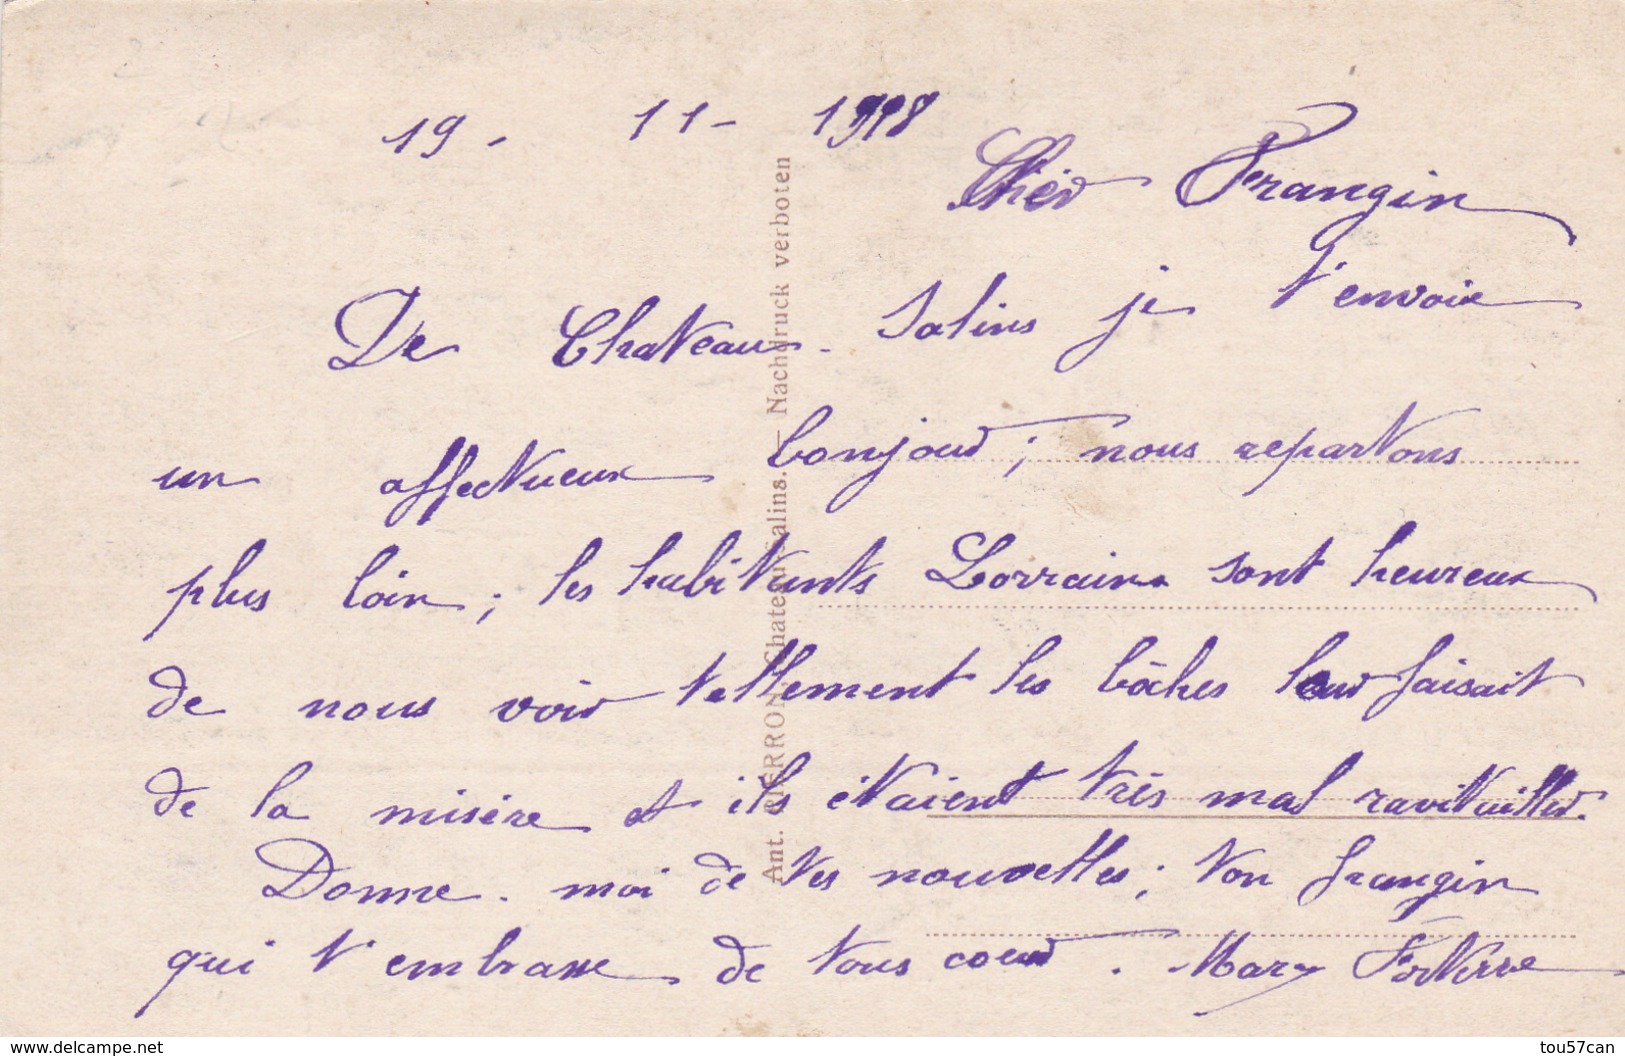 19 - 11 - 1918
Cher Frangin
De Chateau-Salins je t'envoie
un affectueux bonjour ; nous repartons
plus loin ; les habitants Lorrains sont heureux
de nous voir tellement les bôches leur faisait
de la misère et ils étaient très mal ravitailler.
Donne-moi de tes nouvelles ; ton frangin
qui t'embrasse de tous coeur.
Ant. PIERRON, Chateau-Salins. — Nachdruck verboten
www.delcampe.net
tou57can